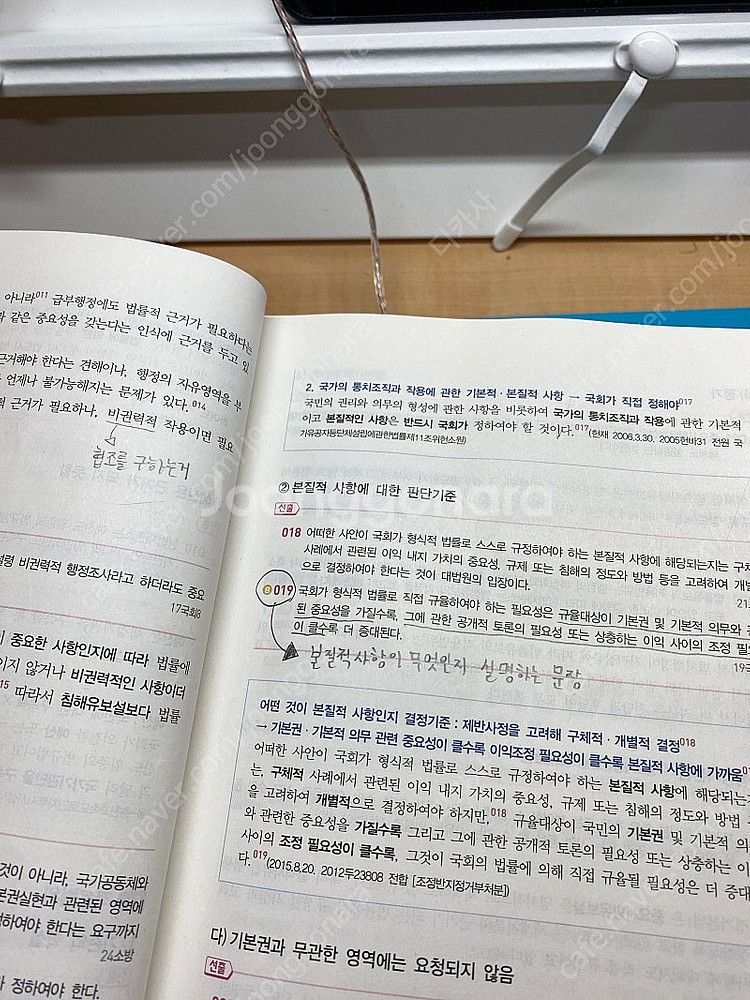 아니라011 급부행정에도 법률적 근거가 필요하다는
같은 중요성을 갖는다는 인식에 근거를 두고 있
근거해야 한다는 견해이나, 행정의 자유영역을 부
언제나 불가능해지는 문제가 있다.014
근거가 필요하나, 비권력적 작용이면 필요
협조를 구하는거
비권력적 행정조사라고 하더라도 중요
17국회8
중요한 사항인지에 따라 법률에
있지 않거나 비권력적인 사항이더
15 따라서 침해유보설보다 법률
것이 아니라, 국가공동체와
본권실현과 관련된 영역에
하여야 한다는 요구까지
24소방
정하여야 한다.
2. 국가의 통치조직과 작용에 관한 기본적·본질적 사항 → 국회가 직접 정해야017
국민의 권리와 의무의 형성에 관한 사항을 비롯하여 국가의 통치조직과 작용에 관한 기본적
이고 본질적인 사항은 반드시 국회가 정하여야 할 것이다.017(헌재 2006.3.30. 2005헌바31 전원 국
가유공자등단체설립에관한법률제11조위헌소원)
② 본질적 사항에 대한 판단기준
선출
018 어떠한 사안이 국회가 형식적 법률로 스스로 규정하여야 하는 본질적 사항에 해당되는지는 구체
사례에서 관련된 이익 내지 가치의 중요성, 규제 또는 침해의 정도와 방법 등을 고려하여 개별
으로 결정하여야 한다는 것이 대법원의 입장이다.
B 019 국회가 형식적 법률로 직접 규율하여야 하는 필요성은 규율대상이 기본권 및 기본적 의무와
된 중요성을 가질수록, 그에 관한 공개적 토론의 필요성 또는 상충하는 이익 사이의 조정 필
이 클수록 더 증대된다.
본질적사항이 무엇인지 설명하는 문장
어떤 것이 본질적 사항인지 결정기준 : 제반사정을 고려해 구체적·개별적 결정018
→ 기본권·기본적 의무 관련 중요성이 클수록 이익조정 필요성이 클수록 본질적 사항에 가까움
어떠한 사안이 국회가 형식적 법률로 스스로 규정하여야 하는 본질적 사항에 해당되는
는, 구체적 사례에서 관련된 이익 내지 가치의 중요성, 규제 또는 침해의 정도와 방법
을 고려하여 개별적으로 결정하여야 하지만,018 규율대상이 국민의 기본권 및 기본적 의
와 관련한 중요성을 가질수록 그리고 그에 관한 공개적 토론의 필요성 또는 상충하는 이
사이의 조정 필요성이 클수록, 그것이 국회의 법률에 의해 직접 규율될 필요성은 더 증대
다.019(2015.8.20. 2012두23808 전합 [조정반지정거부처분])
다) 기본권과 무관한 영역에는 요청되지 않음
선출
Joonggonara
cafe.naver.com/joonggonara